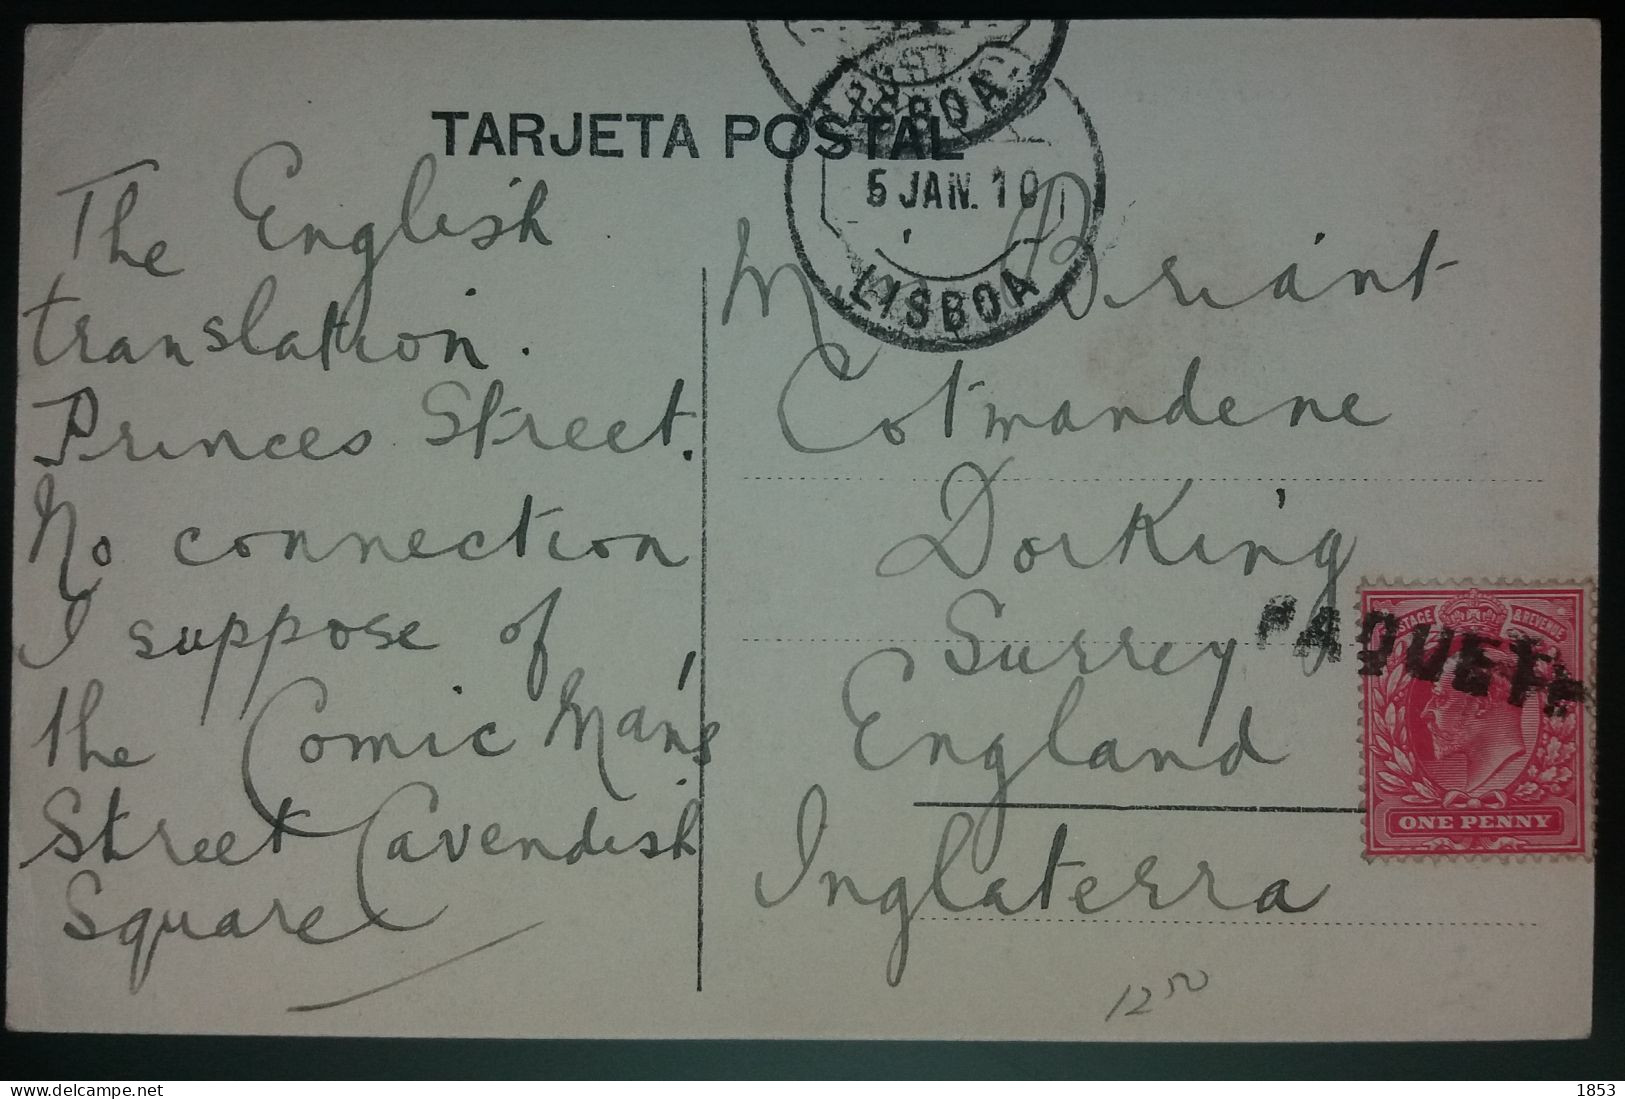 TARJETA POSTAL
LISBOA
5 JAN. 10
LISBOA
The English
translation.
Princes Street.
No connection
I suppose of
the Comic Man's
Street Cavendish
Square
M Briant
Cotmandene
Dorking
Surrey
England
Inglaterra
PAQUETE
POSTAGE & REVENUE
ONE PENNY
12 50
www.delcampe.net
1853